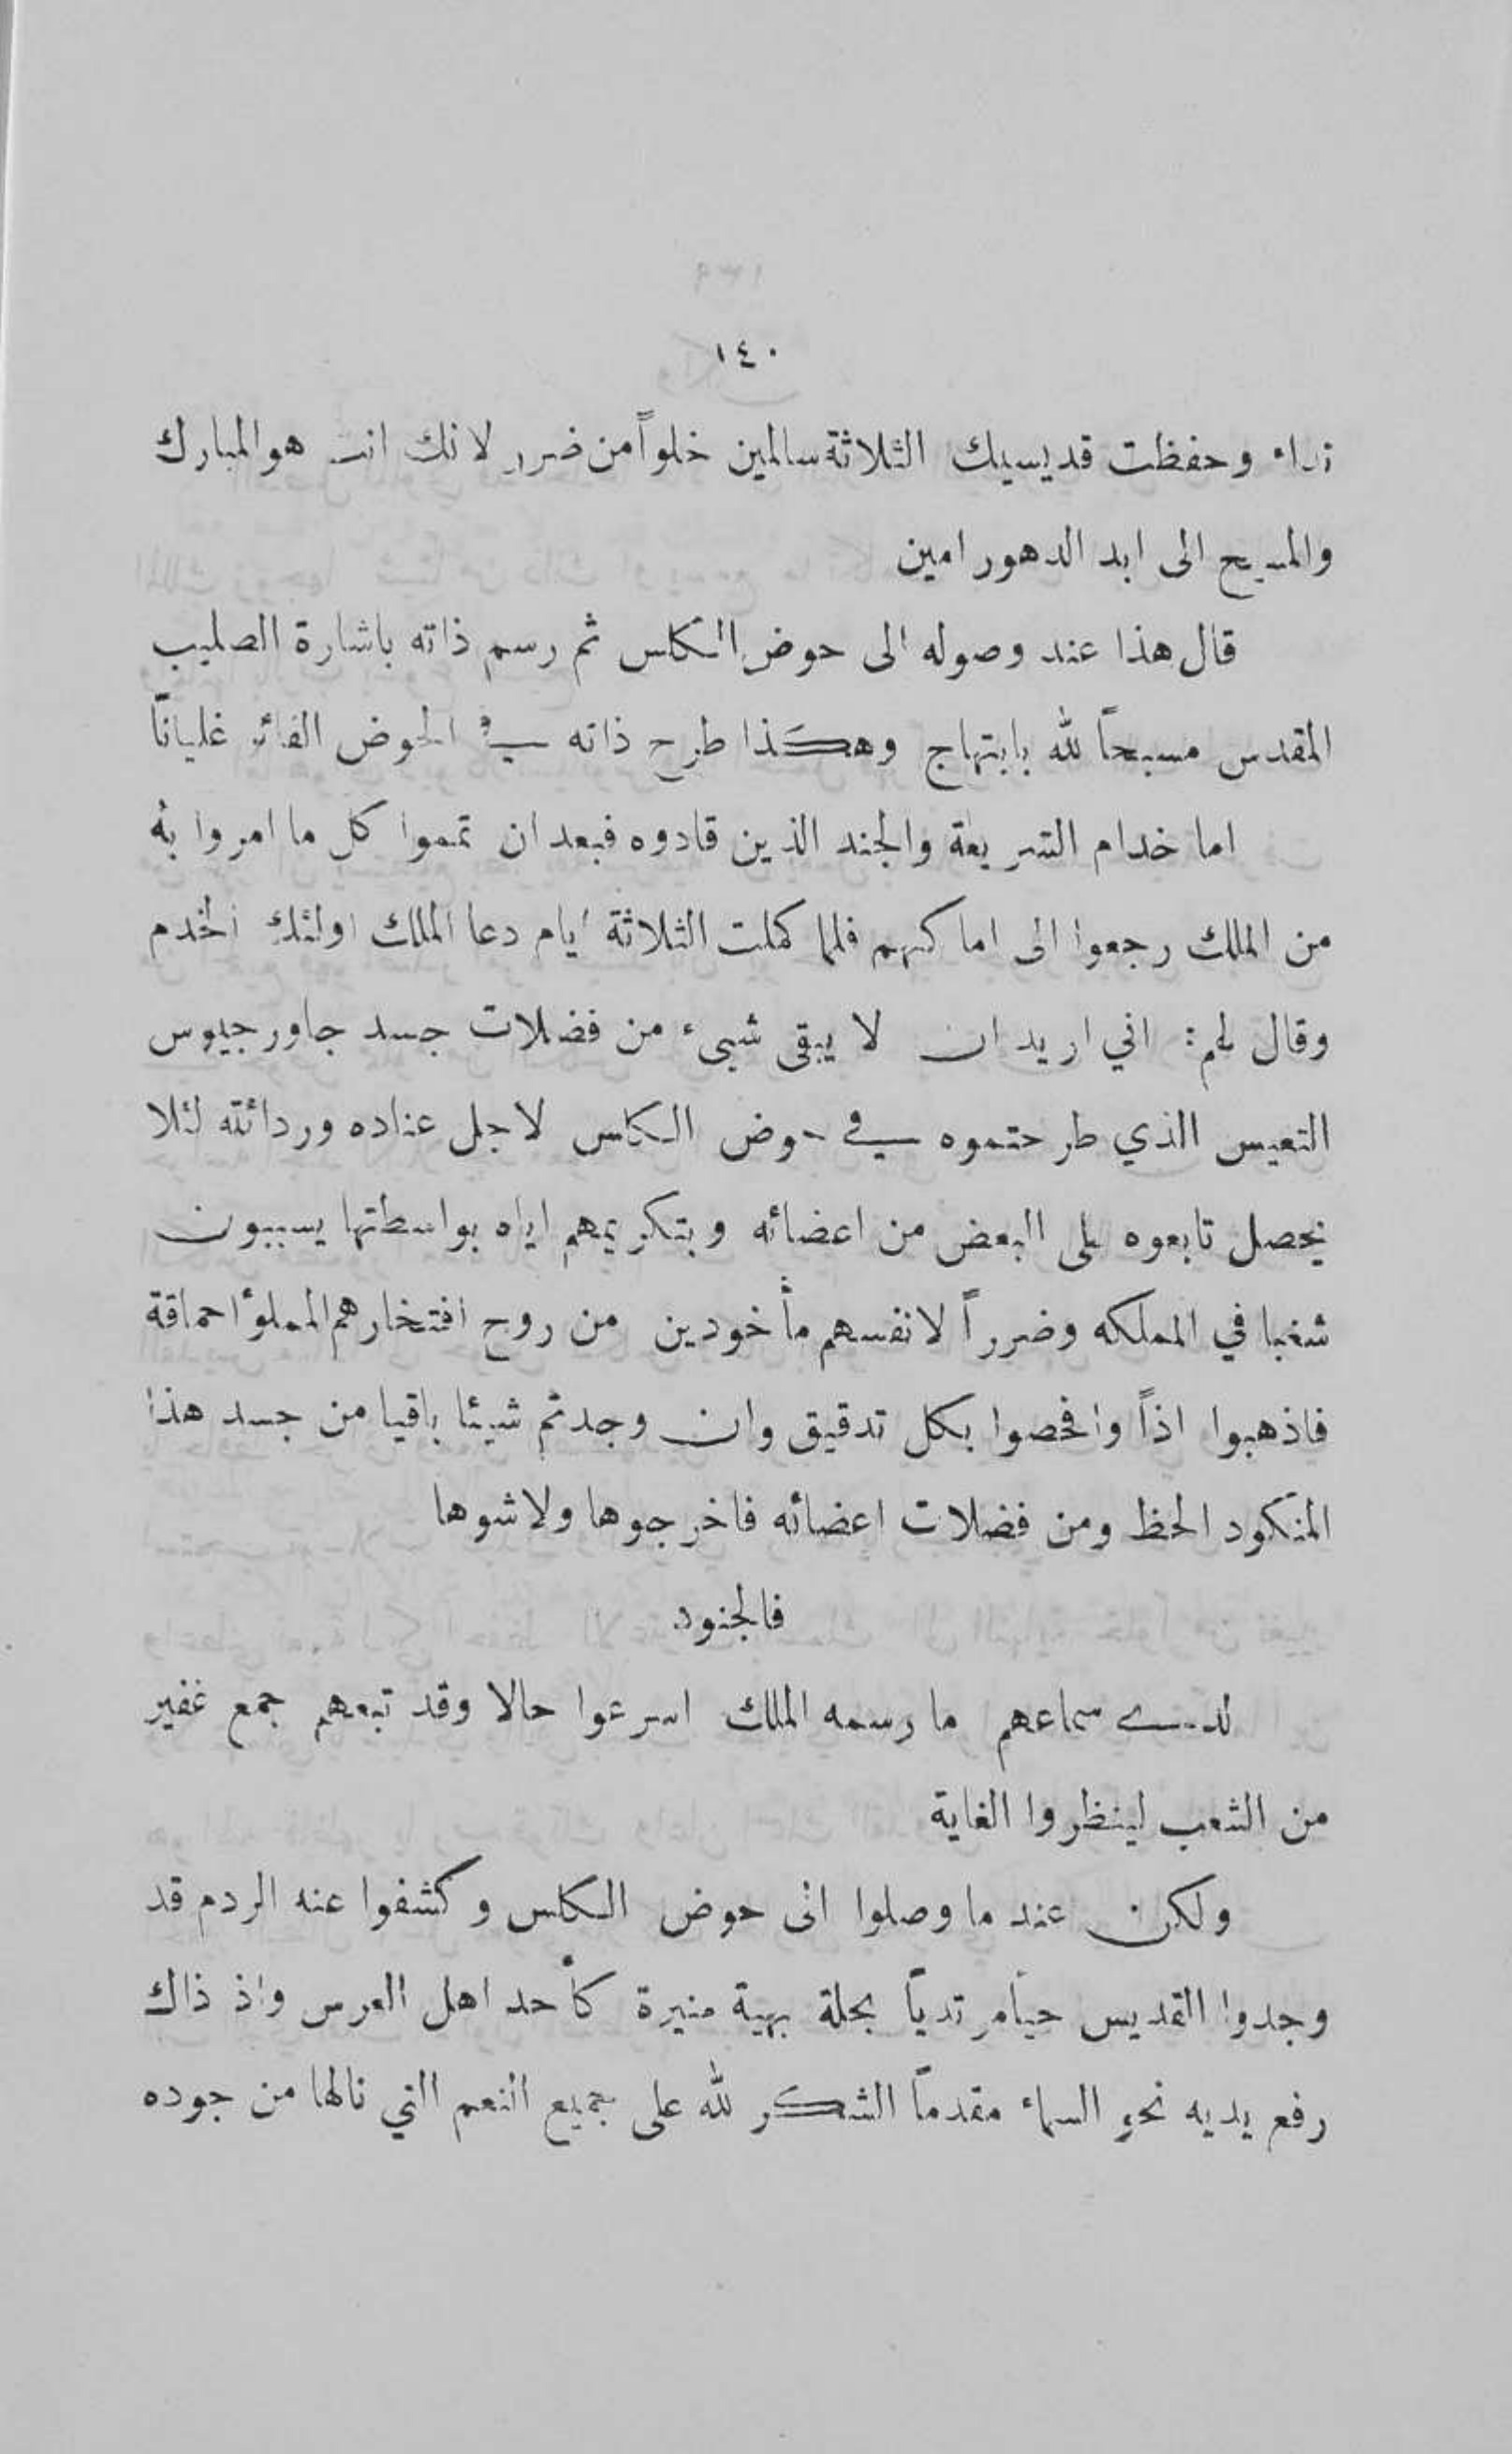 ١٤٠
نداء وحفظت قديسيك الثلاثة سالمين خلواً من ضرر لانك انت هو المبارك
والمسبح الى ابد الدهور امين
قال هذا عند وصوله الى حوض الكلس ثم رسم ذاته باشارة الصليب
المقدس مسبحاً لله بابتهاج وهكذا طرح ذاته في الحوض الفائر غلياناً
اما خدام الشريعة والجند الذين قادوه فبعد ان تمموا كل ما امروا به
من الملك رجعوا الى اماكنهم فلما كملت الثلاثة ايام دعا الملك اولئك الخدم
وقال لهم: اني اريد ان لا يبقى شيىء من فضلات جسد جاورجيوس
التعيس الذي طرحتموه في حوض الكلس لاجل عناده وردائته لئلا
يحصل تابعوه على البعض من اعضائه وبتكريمهم اياه بواسطتها يسببون
شغبا في المملكه وضرراً لانفسهم مأخودين من روح افتخارهم المملوأ حماقة
فاذهبوا اذاً وافحصوا بكل تدقيق وان وجدتم شيئا باقيا من جسد هذا
المنكود الحظ ومن فضلات اعضائه فاخرجوها ولاشوها
فالجنود
لدى سماعهم ما رسمه الملك اسرعوا حالا وقد تبعهم جمع غفير
من الشعب لينظروا الغاية
ولكن عند ما وصلوا الى حوض الكلس وكشفوا عنه الردم قد
وجدوا القديس حياً مرتدياً بحلة بهية منيرة كأحد اهل العرس واذ ذاك
رفع يديه نحو السماء مقدماً الشكر لله على جميع النعم التي نالها من جوده